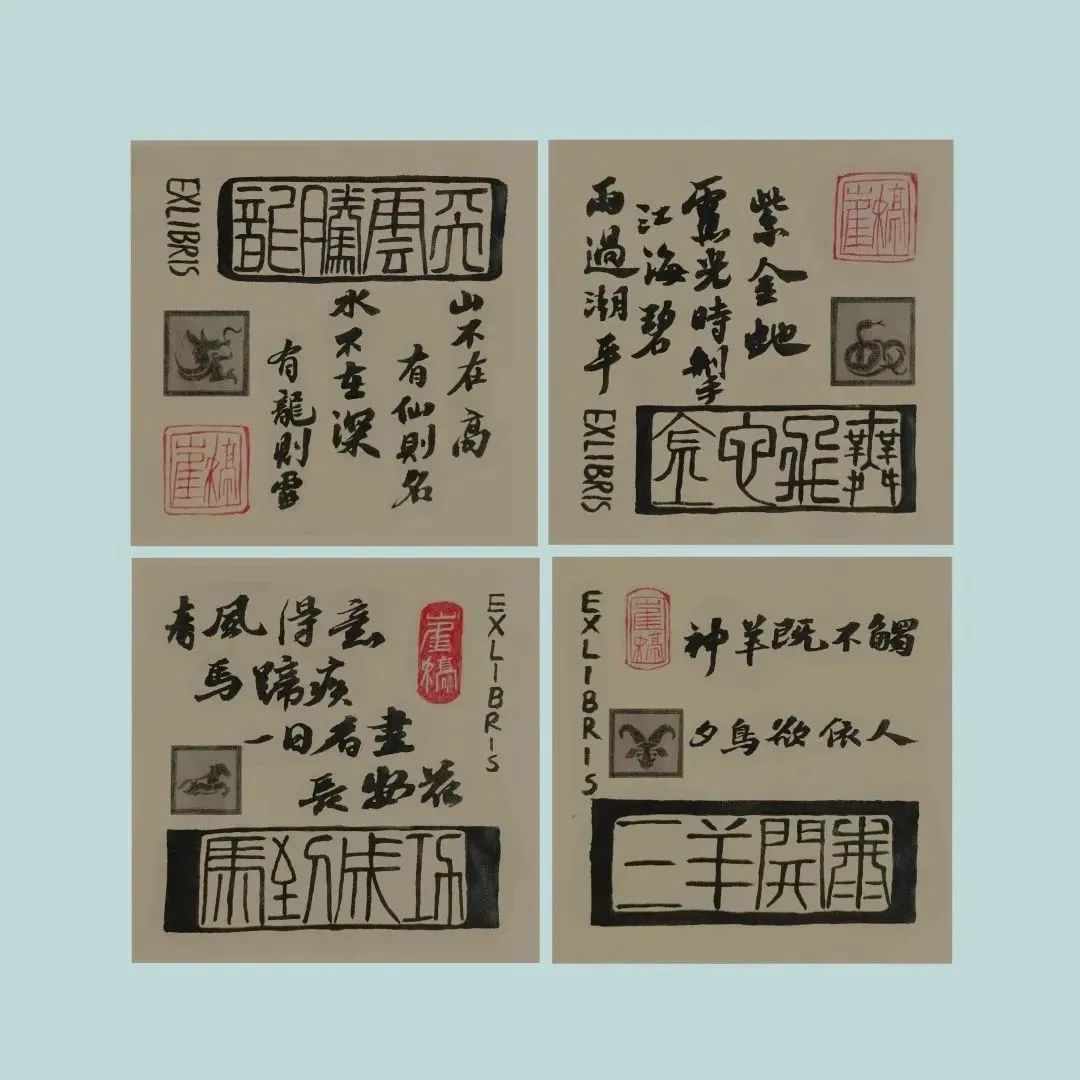 EXLIBRIS
龍騰雲天
山不在高
有仙則名
水不在深
有龍則靈
雨過潮平
江海碧
電光時掣
紫金虵
EXLIBRIS
金它飛舞
春風得意
馬蹄疾
一日看盡
長安花
EXLIBRIS
馬到成功
EXLIBRIS
神羊既不觸
夕鳥欲依人
三羊開泰